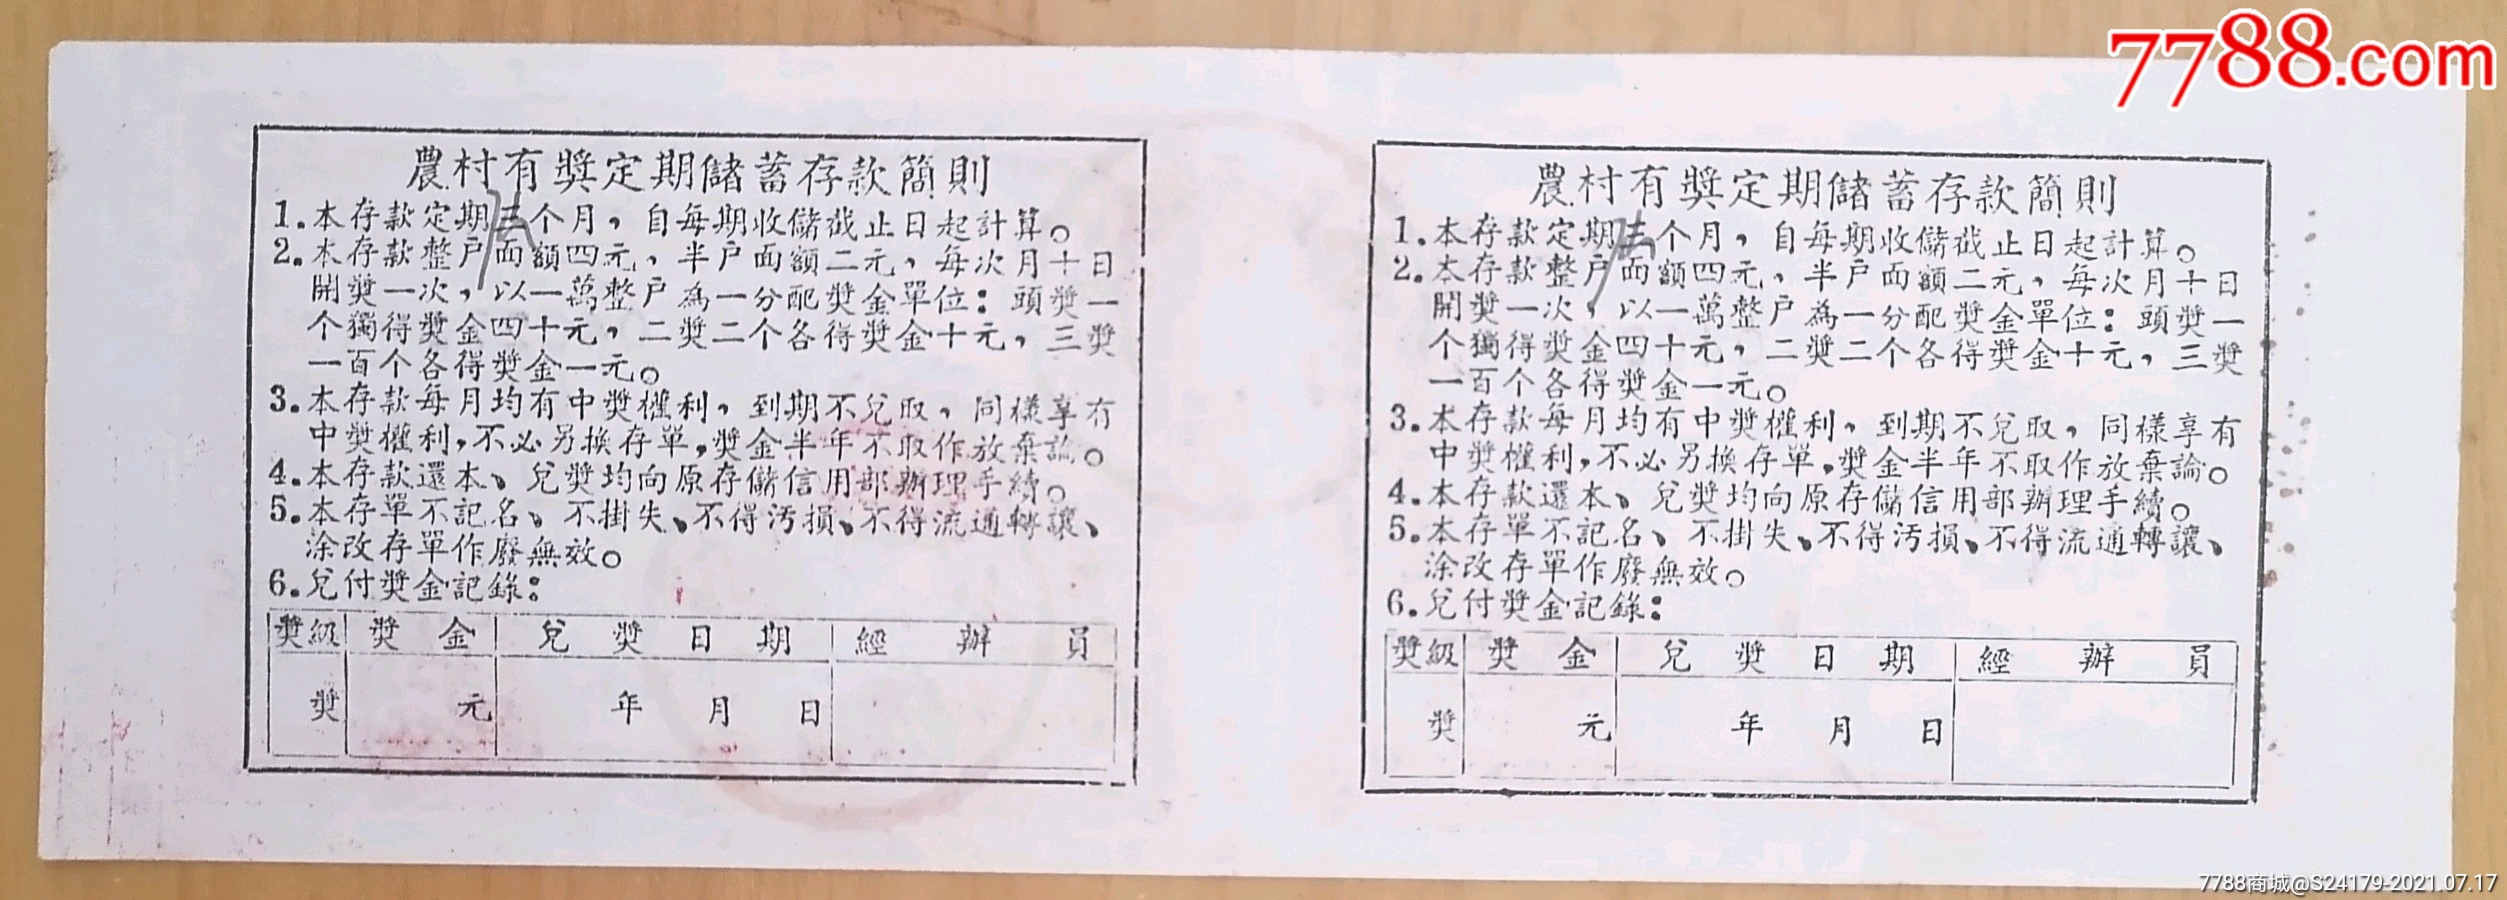 7788.com
農村有獎定期儲蓄存款簡則
1.本存款定期三个月，自每期收儲截止日起計算。
2.本存款整户面額四元，半户面額二元，每次月十日
開獎一次，以一萬整户為一分配獎金單位：頭獎一
个獨得獎金四十元，二獎二个各得獎金十元，三獎
一百个各得獎金一元。
3.本存款每月均有中獎權利，到期不兌取，同樣享有
中獎權利，不必另換存單，獎金半年不取作放棄論。
4.本存款還本、兌獎均向原存儲信用部辦理手續。
5.本存單不記名、不掛失、不得污損、不得流通轉讓、
涂改存單作廢無效。
6.兌付獎金記錄：
獎級 獎金 兌獎日期 經辦員
獎 元 年 月 日
農村有獎定期儲蓄存款簡則
1.本存款定期三个月，自每期收儲截止日起計算。
2.本存款整户面額四元，半户面額二元，每次月十日
開獎一次，以一萬整户為一分配獎金單位：頭獎一
个獨得獎金四十元，二獎二个各得獎金十元，三獎
一百个各得獎金一元。
3.本存款每月均有中獎權利，到期不兌取，同樣享有
中獎權利，不必另換存單，獎金半年不取作放棄論。
4.本存款還本、兌獎均向原存儲信用部辦理手續。
5.本存單不記名、不掛失、不得污損、不得流通轉讓、
涂改存單作廢無效。
6.兌付獎金記錄：
獎級 獎金 兌獎日期 經辦員
獎 元 年 月 日
7788商城@S24179-2021.07.17